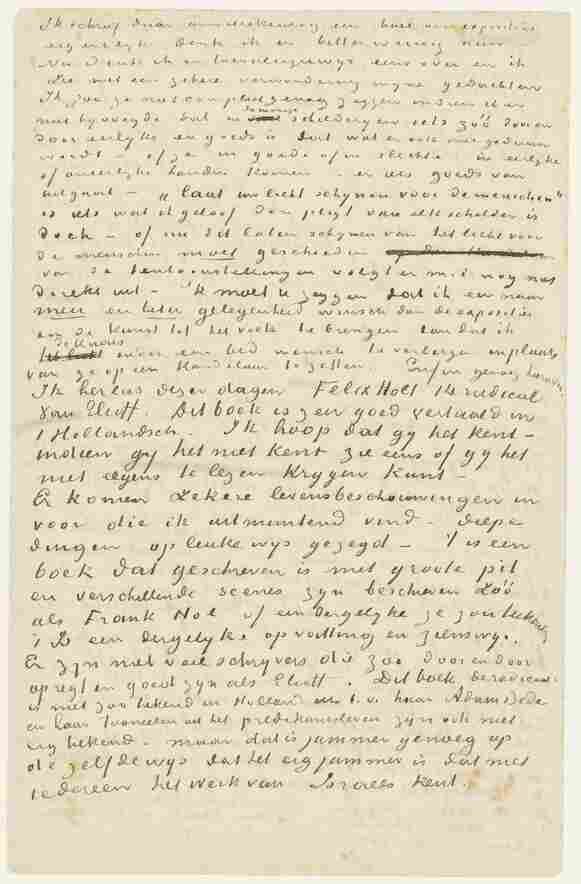 Ik schreef daar aanmerkenswaardig een boel van exposities
eigenlyk denk ik er bitter weinig aan
Nu denk ik er toevalligerwys eens over en ik
zie met een zekere verwondering myne gedachten
Ik zou ze niet compleet genoeg zeggen indien ik er
niet byvoegde dat in sommige schilderyen iets zóó door en
door eerlyks en goeds is dat wat er ook mee gedaan
wordt – of ze in goede of in slechte in eerlyke
of oneerlyke handen komen – er iets goeds van
uitgaat – „laat uw licht schynen voor de menschen"
is iets wat ik geloof den pligt van elk schilder is
doch – of nu dit laten schynen van het licht voor
de menschen moet geschieden
van de tentoonstellingen volgt er m.i. nog niet
direkt uit – 'k moet u zeggen dat ik er naar
meer en beter gelegenheid wensch dan de exposities
om de kunst tot het volk te brengen dan dat ik
de kaars onder een bed wensch te verbergen in plaats
van ze op een kandelaar te zetten. Enfin genoeg hierover.
Ik herlas dezer dagen Felix Holt 't radical
van Eliott. Dit boek is zeer goed vertaald in
't Hollandsch. Ik hoop dat gy het kent –
indien gy het niet kent zie eens of gy het
niet ergens te lezen krygen kunt –
Er komen zekere levensbeschouwingen in
voor die ik uitmuntend vind – diepe
dingen op leuke wys gezegd – 't is een
boek dat geschreven is met groote pit
en verschillende scenes zyn beschreven zóó
als Frank Hol of een dergelyke ze zou teekenen
't Is een dergelyke opvatting en zienswys.
Er zyn niet veel schryvers die zoo door en door
opregt en goed zyn als Eliott. Dit boek de radicaal
is niet zoo bekend in Holland als b.v. haar Adam Bede
en haar tooneelen uit het predikantsleven zyn ook niet
erg bekend – maar dat is jammer genoeg op
die zelfde wys dat het erg jammer is dat niet
iedereen het werk van Israels kent.